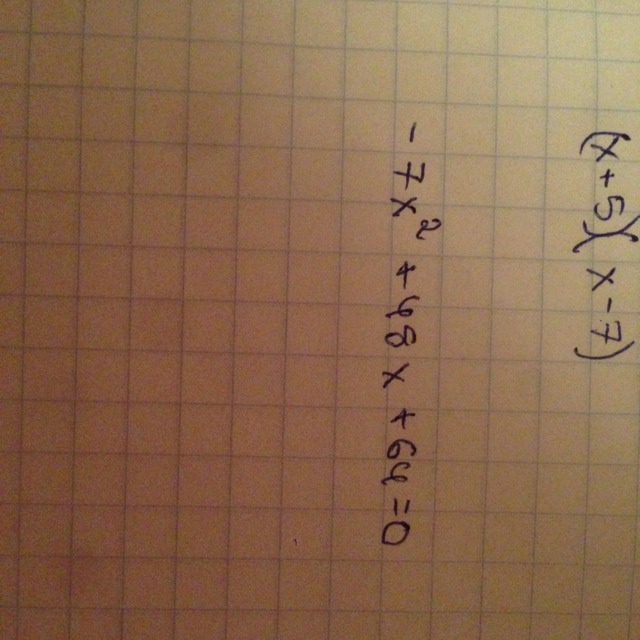 (x+5)(x-7)
-7x²+68x+66=0